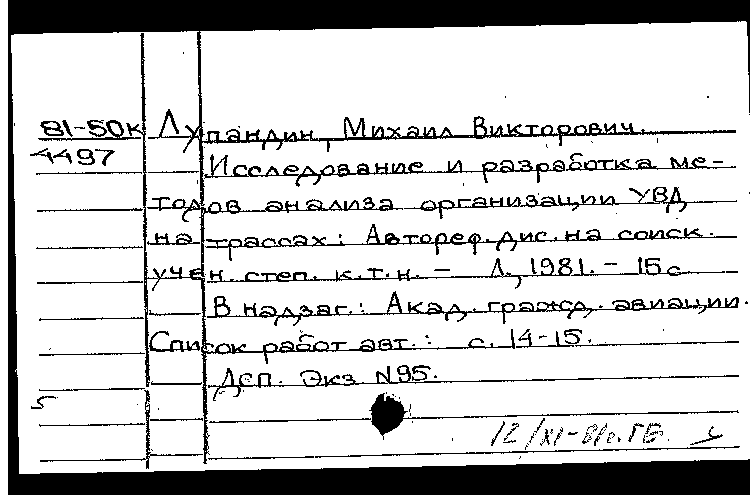 81-50к Лупандин, Михаил Викторович.
4497 Исследование и разработка ме-
тодов анализа организации УВД
на трассах: Автореф. дис. на соиск.
учен. степ. к.т.н. – Л., 1981. – 15с
В надзаг.: Акад. гражд. авиации.
Список работ авт.: с. 14-15.
Дсп. Экз N95.
5
12/XI-81г. ГБ.